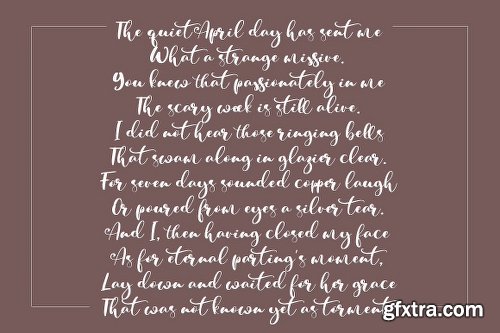 The quiet April day has sent me
What a strange missive.
You knew that passionately in me
The scary week is still alive.
I did not hear those ringing bells
That swam along in glazier clear.
For seven days sounded copper laugh
Or poured from eyes a silver tear.
And I, then having closed my face
As for eternal parting's moment,
Lay down and waited for her grace
That was not known yet as torment.
gfxtra.com